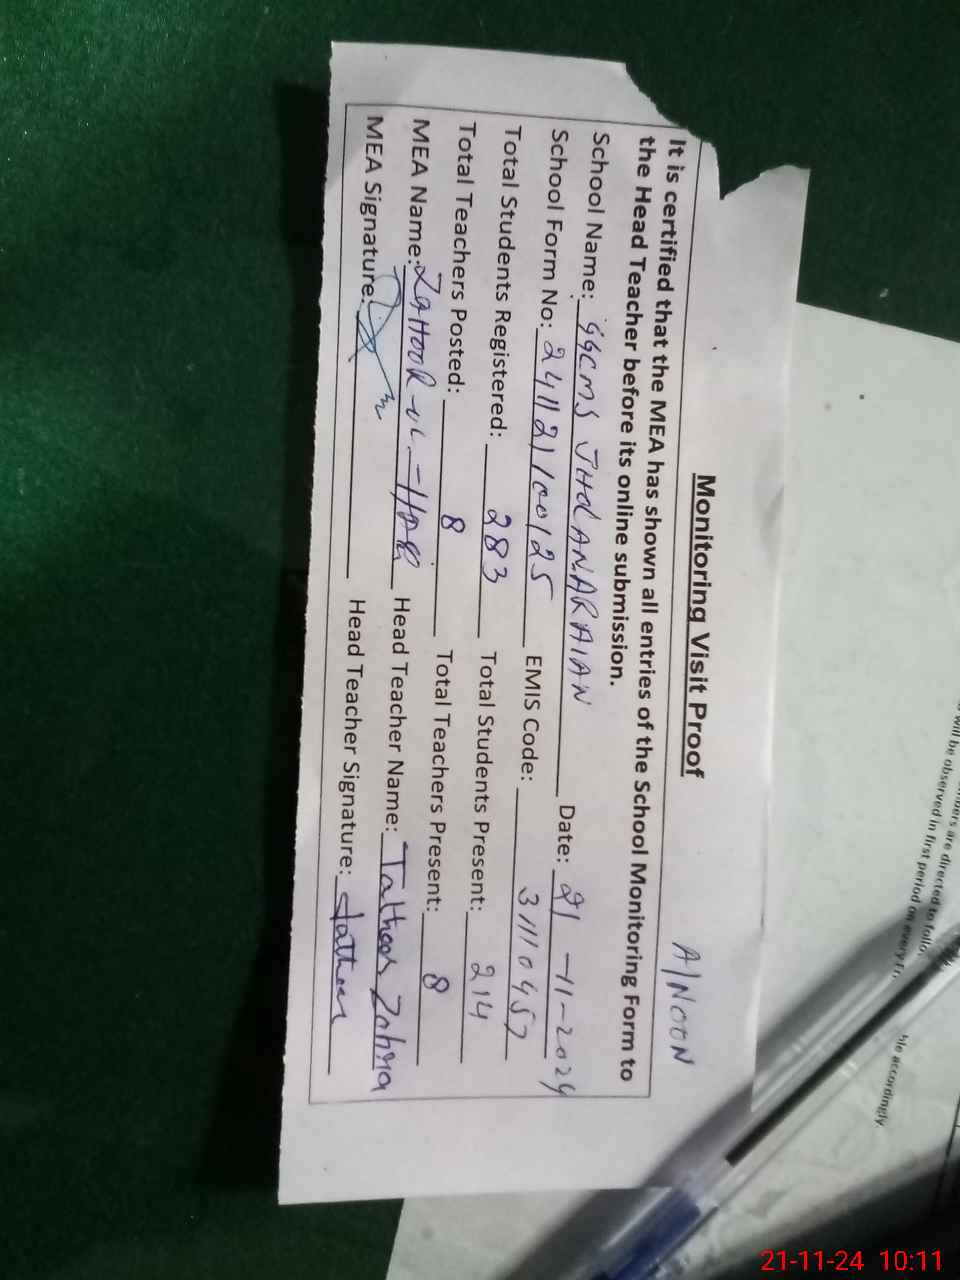 Monitoring Visit Proof
A/NOON
It is certified that the MEA has shown all entries of the School Monitoring Form to
the Head Teacher before its online submission.
School Name: GGCMS JHOLANARAIAN Date: 21-11-2024
School Form No: 241121100125 EMIS Code: 31110457
Total Students Registered: 283 Total Students Present: 214
Total Teachers Posted: 8 Total Teachers Present: 8
MEA Name: ZAHOOR-UL-HAQ Head Teacher Name: Tatheer Zahra
MEA Signature: Head Teacher Signature: Tatheer
will be observed in first period on every
are directed to
ble accordingly.
21-11-24 10:11